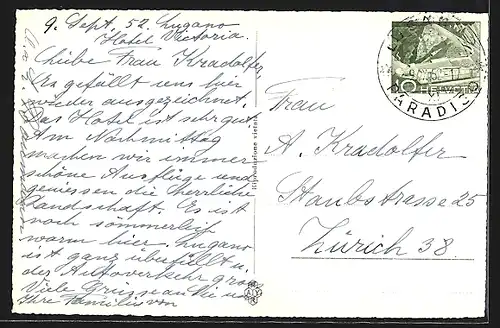 9. Sept. 52. Lugano
Hotel Victoria.
Liebe Frau Kradolfer,
Es gefällt uns hier
wieder ausgezeichnet.
Das Hotel ist sehr gut.
Am Nachmittag
machen wir immer
schöne Ausflüge und
geniessen die herrliche
Landschaft. Es ist
noch sömmerlich
warm hier. Lugano
ist ganz überfüllt u.
der Autoverkehr gross
Viele Grüsse an Sie u.
Ihre Familie von
Riproduzione vietata
HELVETIA
PARADISO
Frau
A. Kradolfer
Staubstrasse 25
Zürich 38